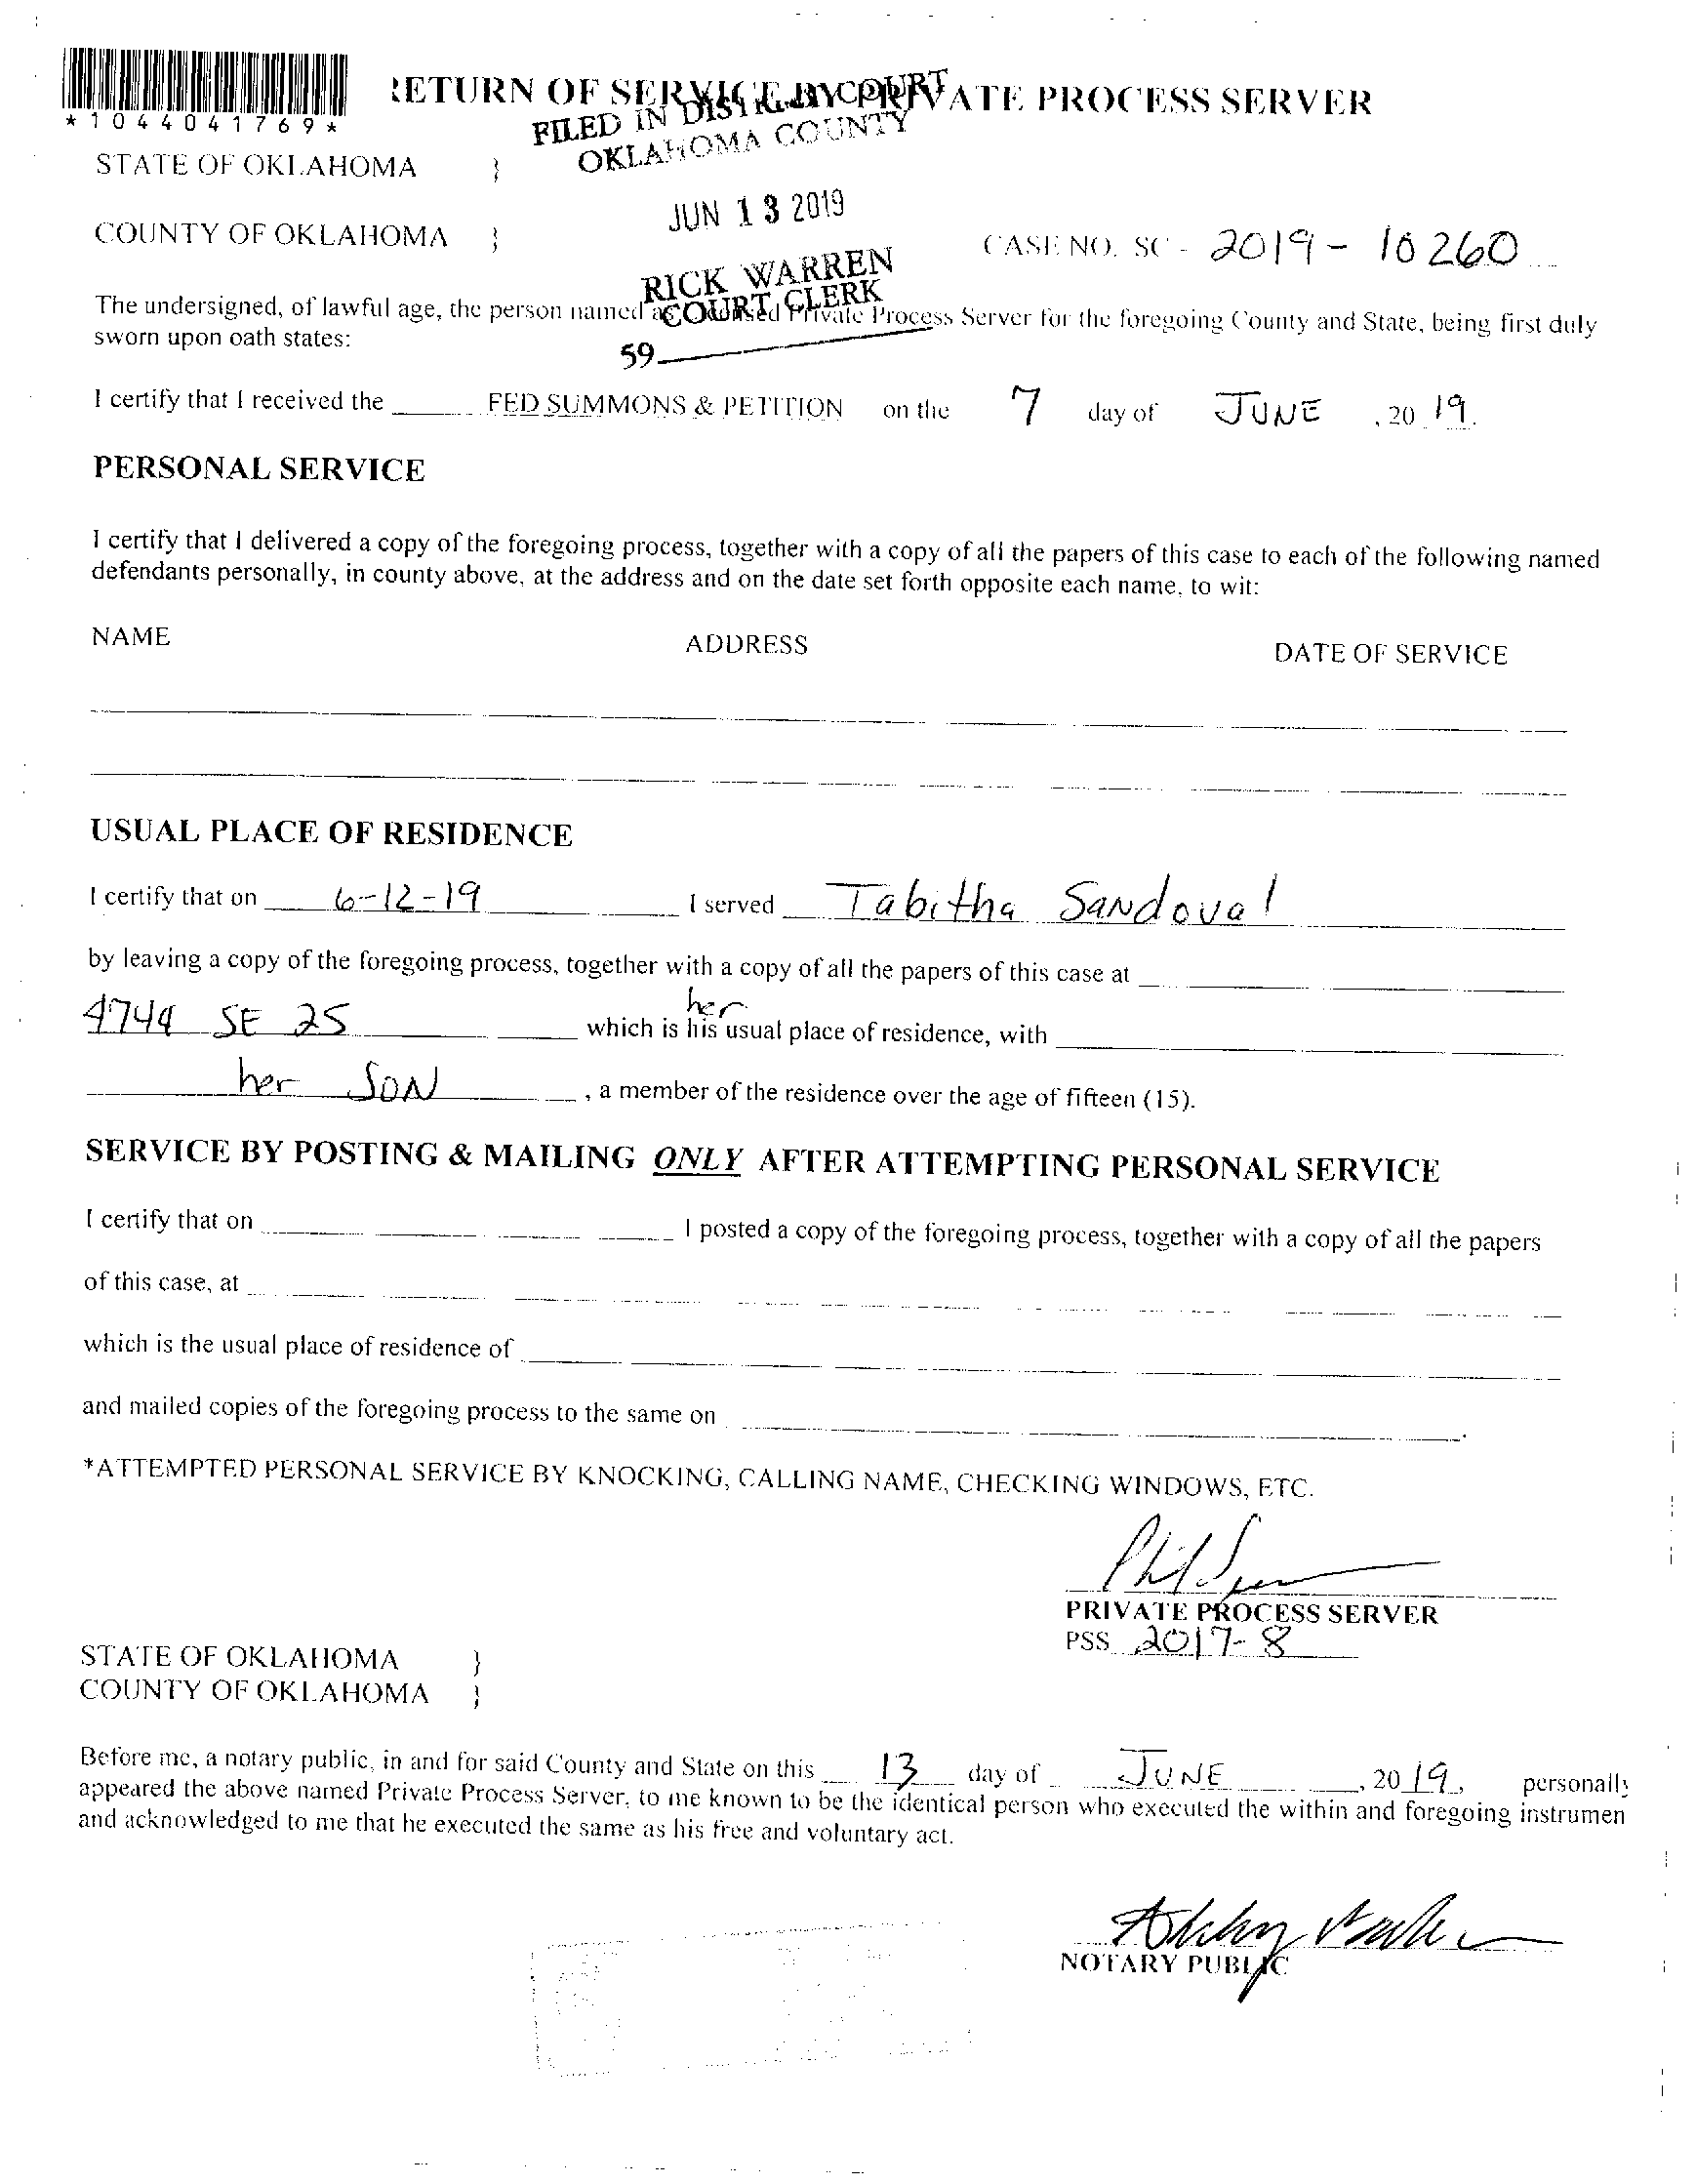 *1044041769*
RETURN OF SERVICE BY PRIVATE PROCESS SERVER
FILED IN DISTRICT COURT
OKLAHOMA COUNTY
STATE OF OKLAHOMA }
JUN 13 2019
COUNTY OF OKLAHOMA }
CASE NO. SC - 2019 - 10260
RICK WARREN
COURT CLERK
59
The undersigned, of lawful age, the person named as Licensed Private Process Server for the foregoing County and State, being first duly
sworn upon oath states:
I certify that I received the FED SUMMONS & PETITION on the 7 day of JUNE , 20 19.
PERSONAL SERVICE
I certify that I delivered a copy of the foregoing process, together with a copy of all the papers of this case to each of the following named
defendants personally, in county above, at the address and on the date set forth opposite each name, to wit:
NAME ADDRESS DATE OF SERVICE
USUAL PLACE OF RESIDENCE
I certify that on 6-12-19 I served Tabitha Sandoval
by leaving a copy of the foregoing process, together with a copy of all the papers of this case at
her
4744 SE 25 which is his usual place of residence, with
her SON , a member of the residence over the age of fifteen (15).
SERVICE BY POSTING & MAILING ONLY AFTER ATTEMPTING PERSONAL SERVICE
I certify that on I posted a copy of the foregoing process, together with a copy of all the papers
of this case, at
which is the usual place of residence of
and mailed copies of the foregoing process to the same on .
*ATTEMPTED PERSONAL SERVICE BY KNOCKING, CALLING NAME, CHECKING WINDOWS, ETC.
PRIVATE PROCESS SERVER
PSS 2017-8
STATE OF OKLAHOMA }
COUNTY OF OKLAHOMA }
Before me, a notary public, in and for said County and State on this 13 day of JUNE , 20 19, personally
appeared the above named Private Process Server, to me known to be the identical person who executed the within and foregoing instrumen
and acknowledged to me that he executed the same as his free and voluntary act.
NOTARY PUBLIC